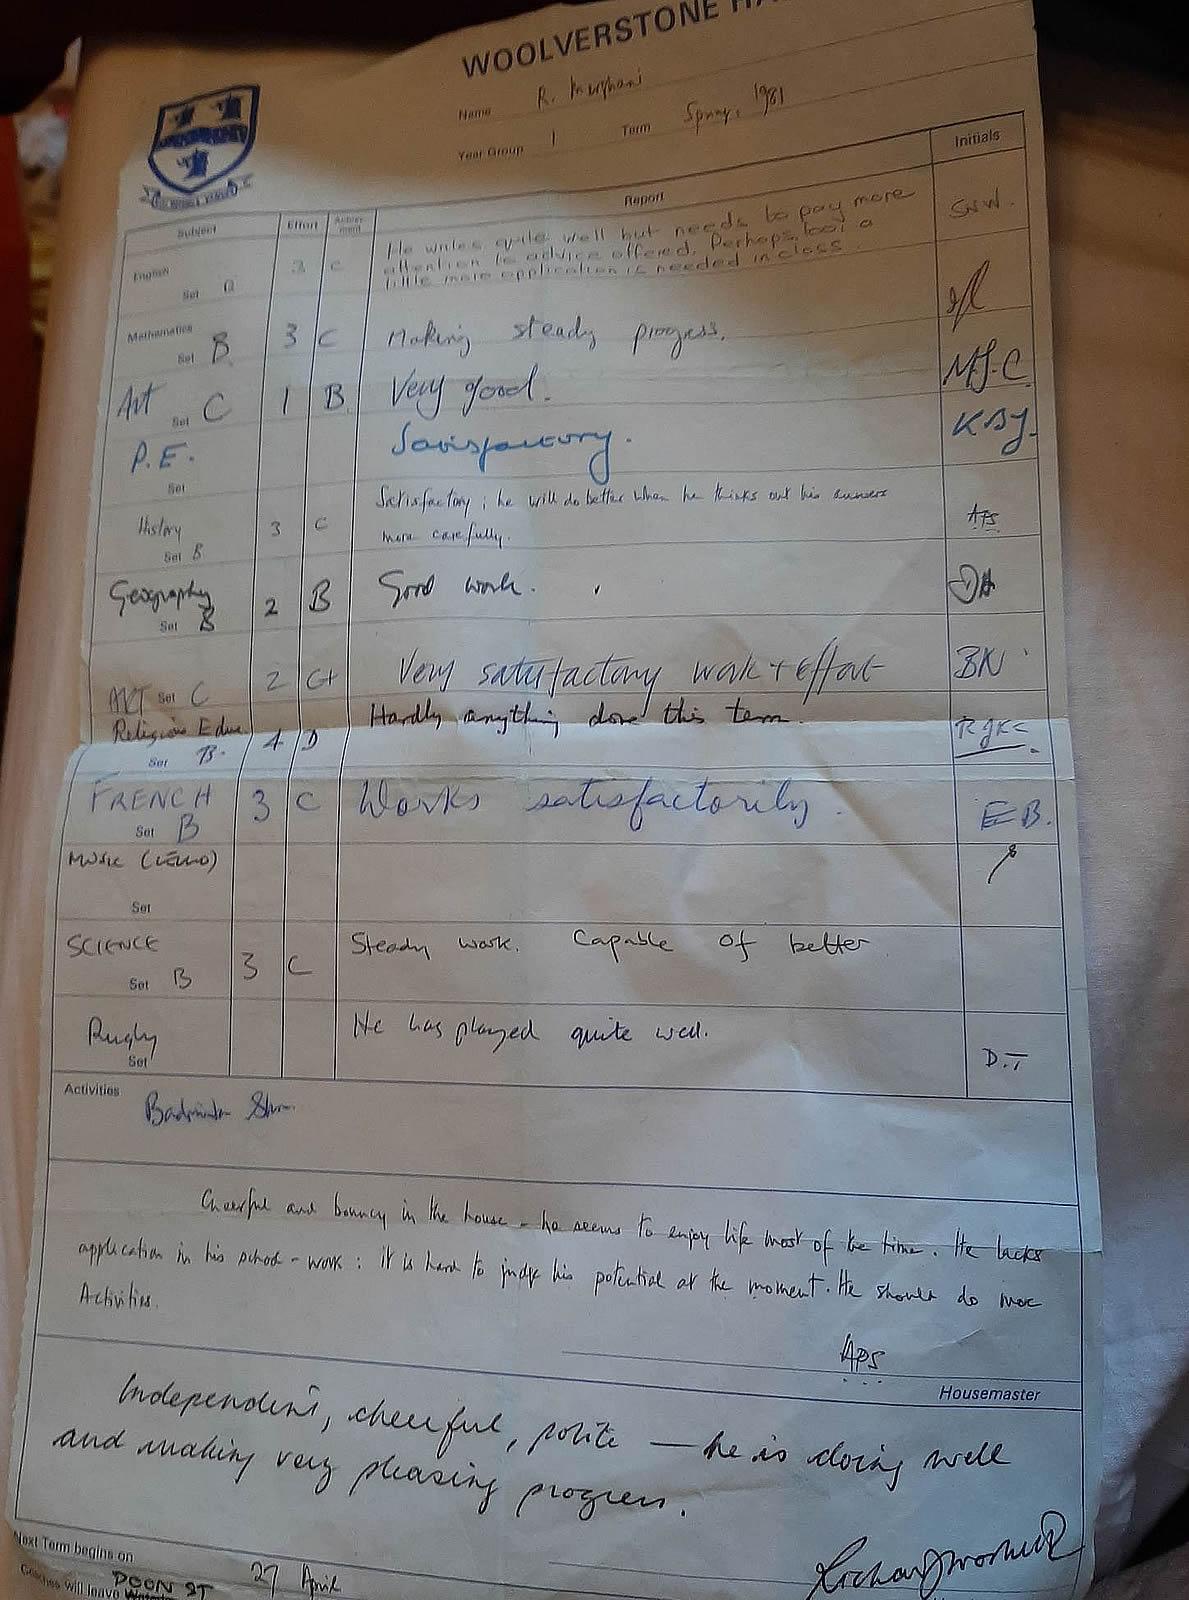 WOOLVERSTONE HA
Name R. Murphani
Year Group 1 Term Spring, 1981
Subject Effort Achieve-ment Report Initials
English Set B 3 C He writes quite well but needs to pay more
attention to advice offered. Perhaps, too, a
little more application is needed in class. SNW.
Mathematics Set B 3 C Making steady progress.
Art Set C 1 B Very good. MJ.C.
P.E. Set Satisfactory. KBJ.
History Set B 3 C Satisfactory; he will do better when he thinks out his answers
more carefully. APS
Geography Set B 2 B Good work. DH
Set C 2 C+ Very satisfactory work + effort BN
Religious Educ. Set B. 4 D Hardly anything done this term. RJKC.
FRENCH Set B 3 C Works satisfactorily. EB.
MUSIC
Set
SCIENCE Set B 3 C Steady work. Capable of better
Rugby Set He has played quite well. D.T
Activities Badminton
Cheerful and bouncy in the house - he seems to enjoy life most of the time. He lacks
application in his school-work: it is hard to judge his potential at the moment. He should do more
Activities.
APS
Housemaster
Independent, cheerful, polite — he is doing well
and making very pleasing progress.
Next Term begins on 27 April
Coaches will leave DOON ST